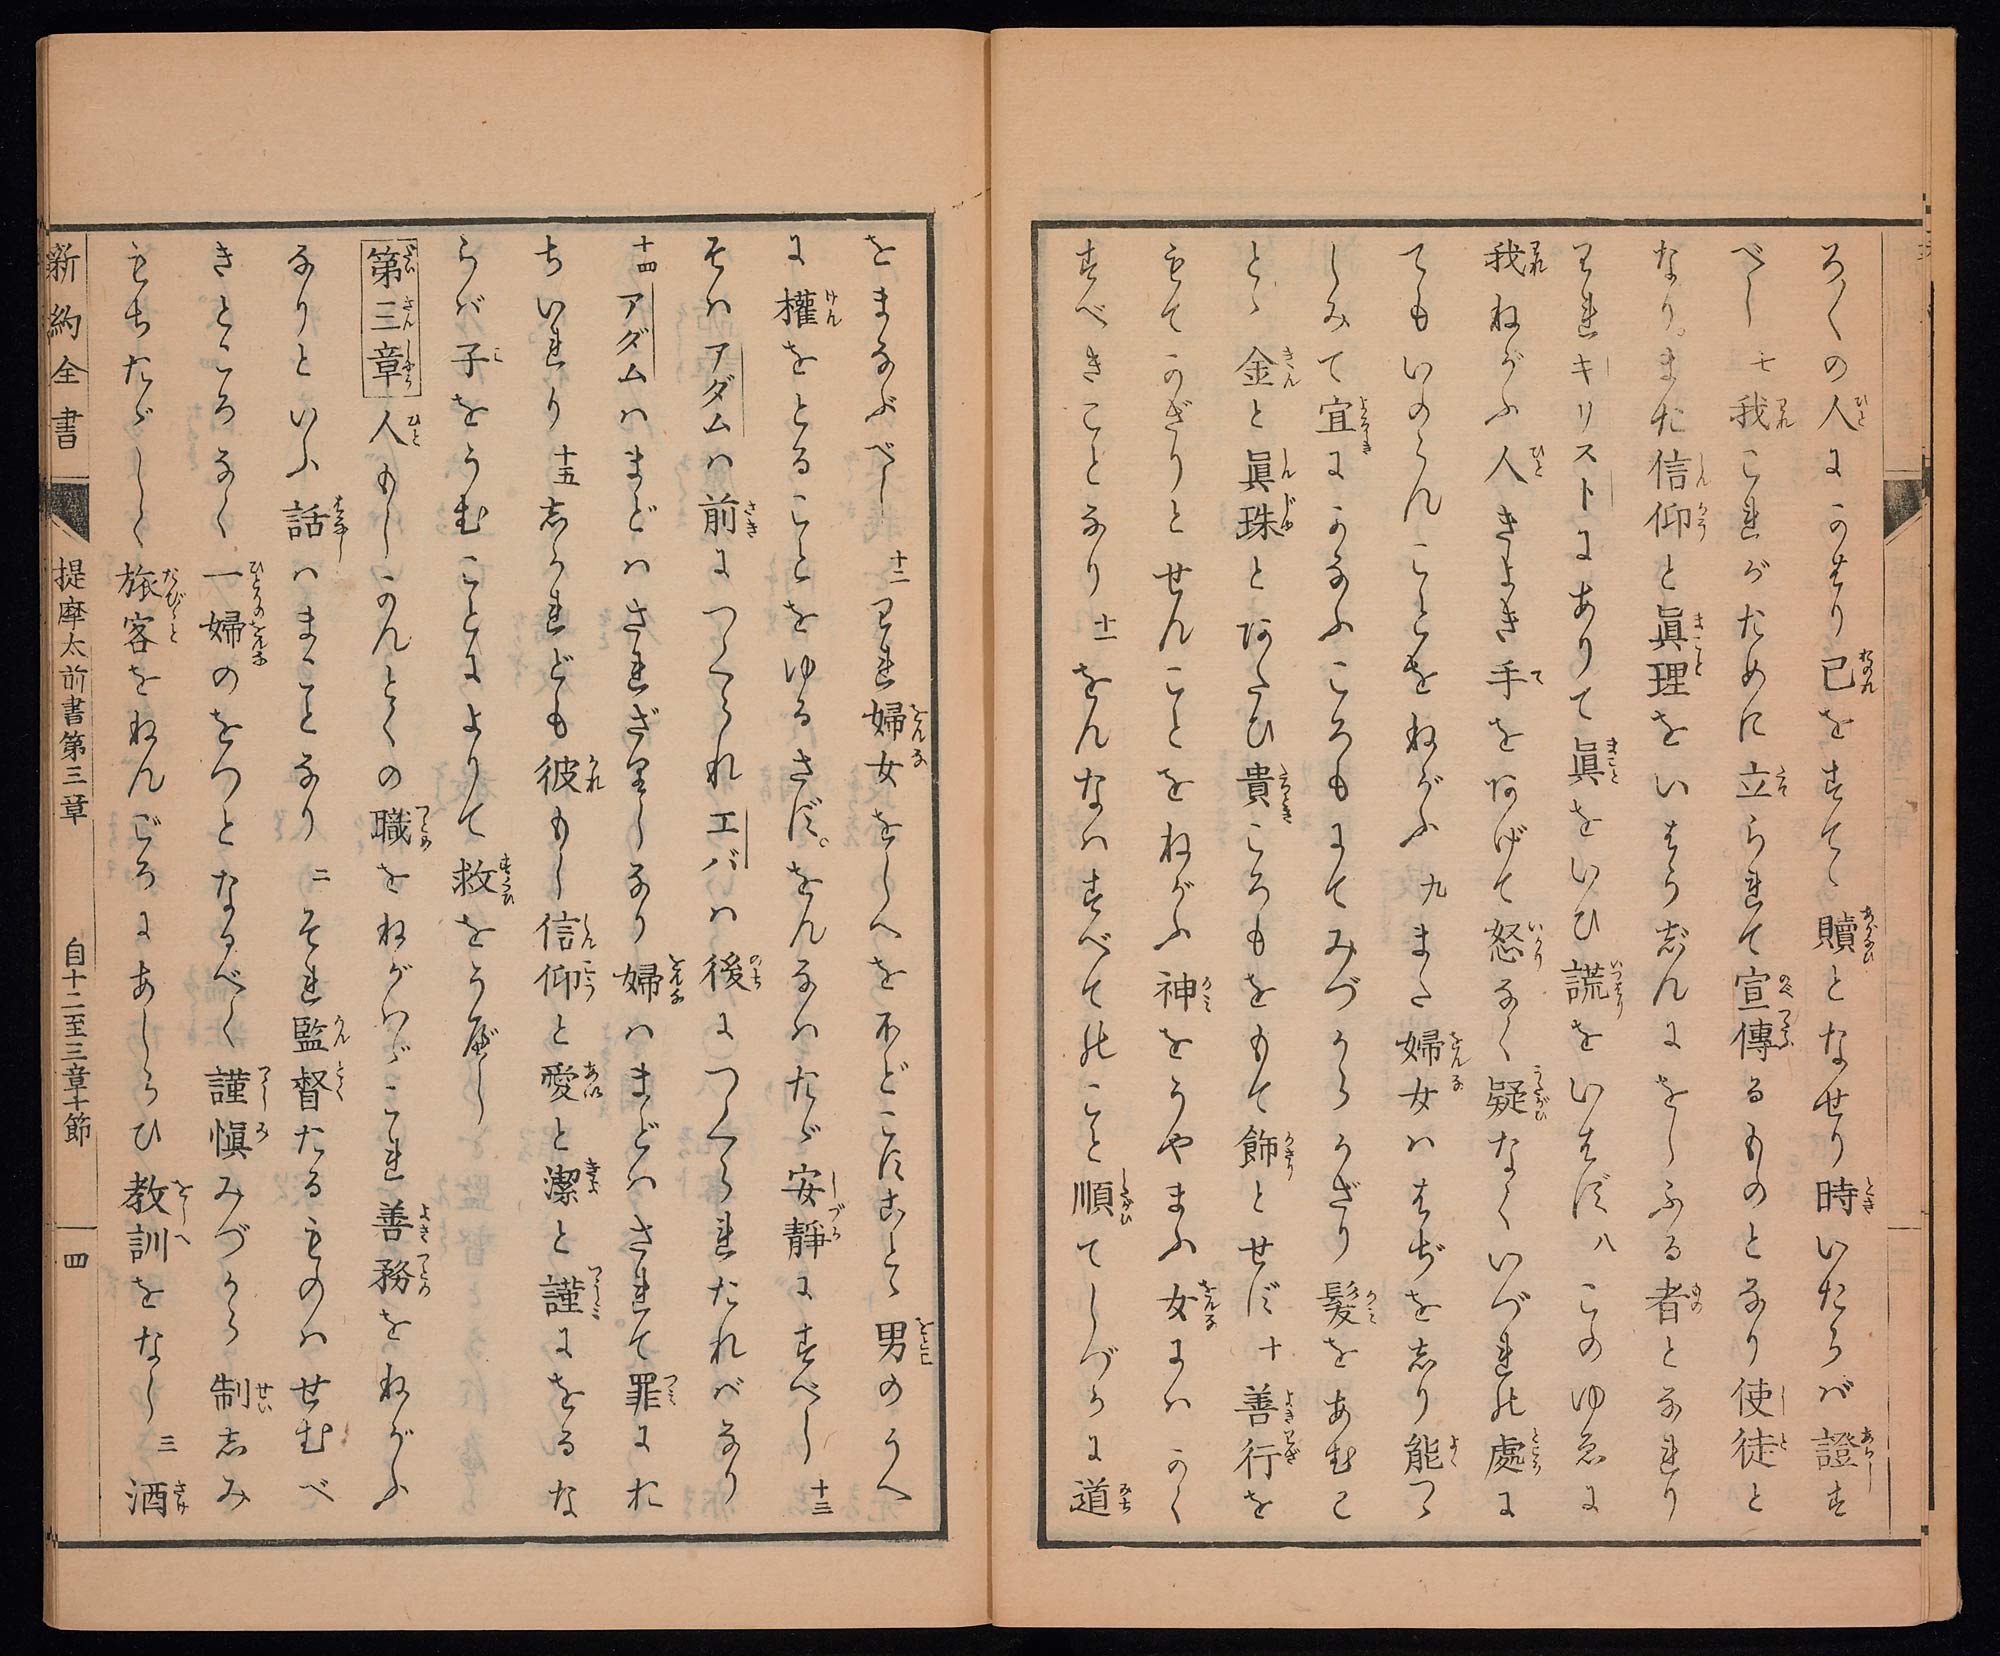 ろくの人にかはり己をすてゝ贖となせり時いたらば證す
べし七我これがために立られて宣傳るものとなり使徒と
なり。また信仰と眞理をいはうぢんにをしふる者となれり
われキリストにありて眞をいひ謊をいはず八このゆゑに
我ねがふ人きよき手をあげて怒なく疑なくいづれの處に
てもいのらんことをねがふ九また婦女ははぢをしり能つゝ
しみて宜にかなふころもにてみづからかざり髮をあむこ
とゝ金と眞珠とあたひ貴ころもをもて飾とせず十善行を
もてかざりとせんことをねがふ神をうやまふ女にはかく
すべきことなり十一をんなはすべてのこと順てしづかに道
をまなぶべし十二われ婦女をしへをほどこすことゝ男のうへ
に權をとることをゆるさず。をんなはたゞ安靜にすべし十三
そはアダムは前につくられエバは後につくられたればなり
十四アダムはまどはされざりしなり婦はまどはされて罪にお
ちいれり十五しかれども彼もし信仰と愛と潔と謹にをるな
らば子をうむことによりて救をうべし
第三章人もしかんとくの職をねがはゞこれ善務をねがふ
なりといふ話はまことなり二それ監督たるものはせむべ
きところなく一婦のをつとなるべく謹愼みづから制しみ
もちたゞしく旅客をねんごろにあしらひ教訓をなし三酒
新約全書
提摩太前書第三章
自十二至三章十節
四